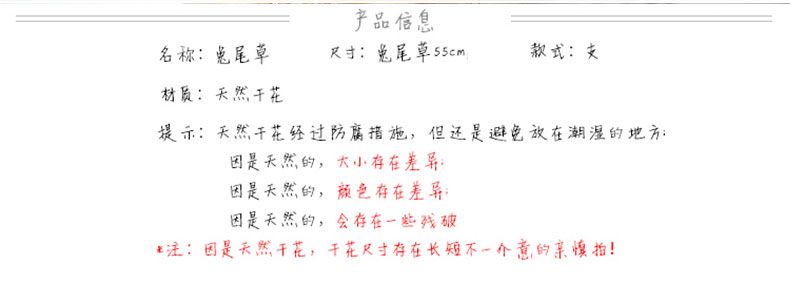 产品信息
名称：兔尾草 尺寸：兔尾草55cm 款式：支
材质：天然干花
提示：天然干花经过防腐措施，但还是避免放在潮湿的地方；
因是天然的，大小存在差异；
因是天然的，颜色存在差异；
因是天然的，会存在一些残破
*注：因是天然干花，干花尺寸存在长短不一介意的亲慎拍！